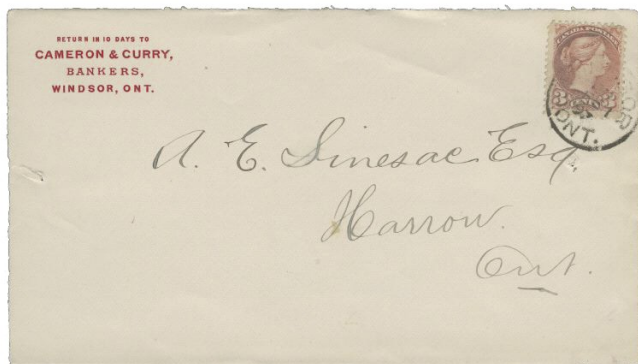 RETURN IN 10 DAYS TO
CAMERON & CURRY,
BANKERS,
WINDSOR, ONT.
CANADA POSTAGE
ONT.
A. E. Sinesac Esq.
Harrow.
Ont.